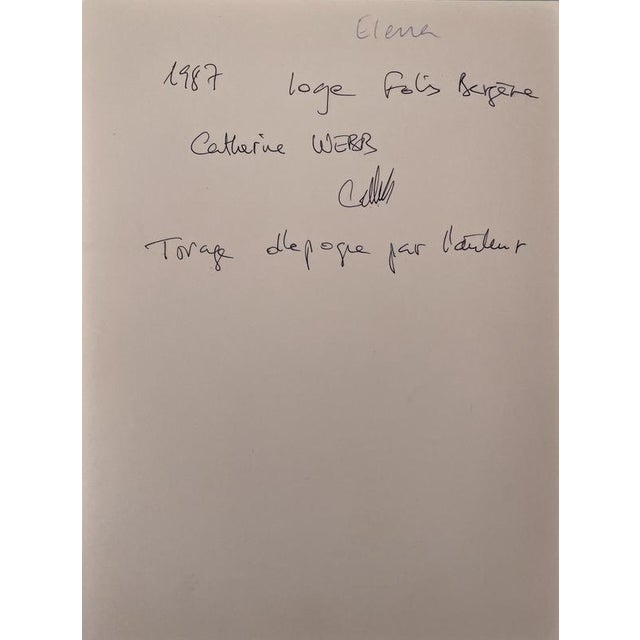 Elena
1987 loge Folis Bergère
Catherine WEBB
Tirage d'epoque par l'auteur